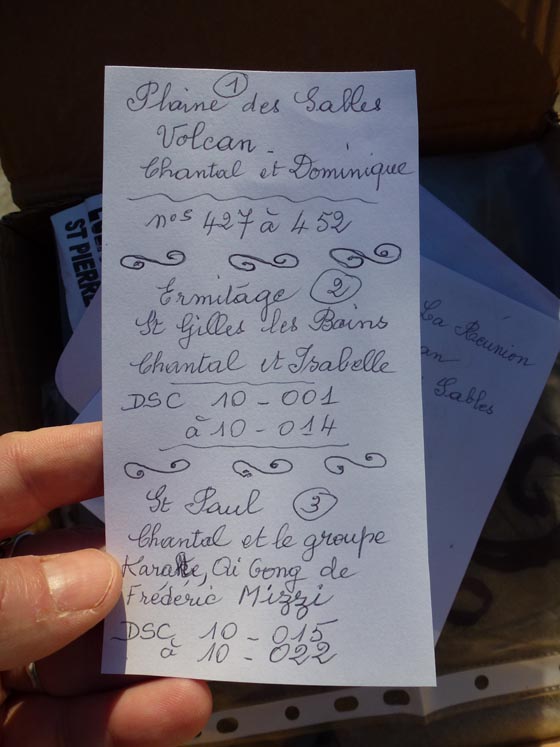 1
Plaine des Sables
Volcan -
Chantal et Dominique
nos 427 à 452
Ermitage 2
St Gilles les Bains
Chantal et Isabelle
DSC 10 - 001
à 10 - 014
St Paul 3
Chantal et le groupe
Karaté, Qi Gong de
Frédéric Mizzi
DSC 10 - 015
à 10 - 022
ST PIERRE
La Réunion
Sables